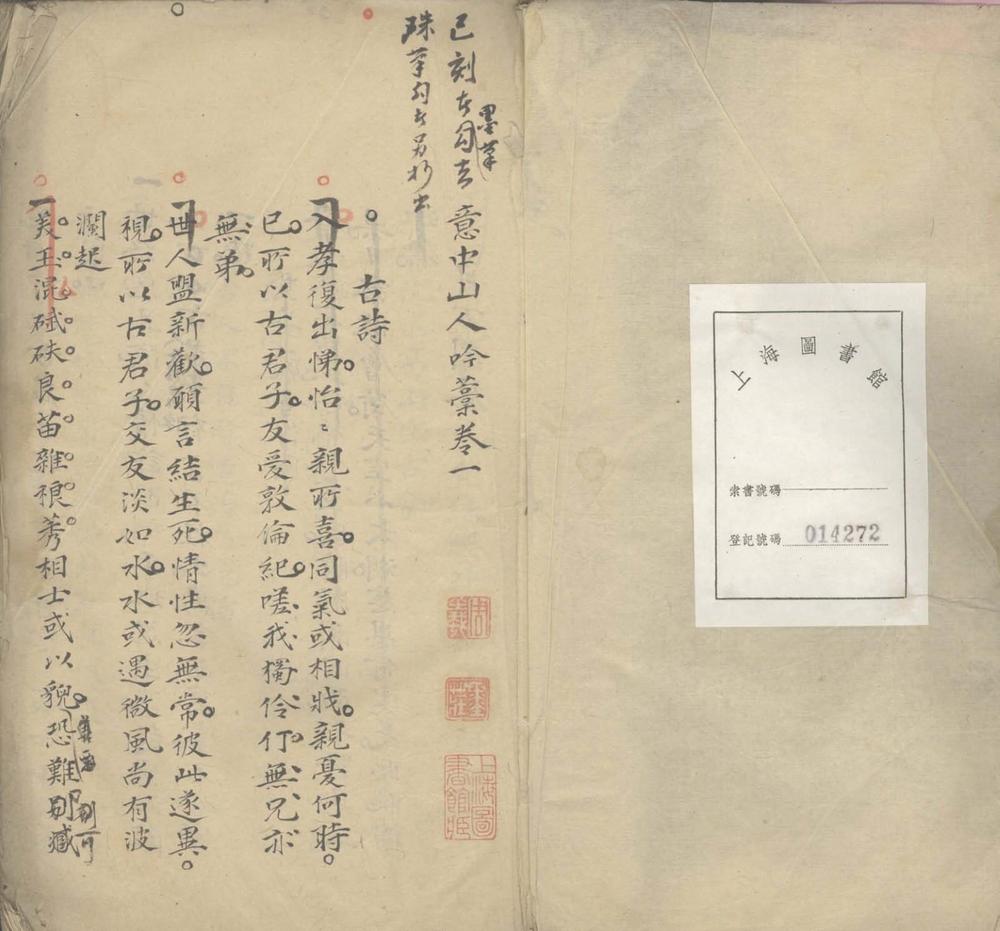 上海圖書館
索書號碼
登記號碼 014272
已刻者勾去
墨筆
硃筆勾者另抄出
意中山人吟藁卷一
古詩
入孝復出悌怡〻親所喜同氣或相戕親憂何時
已所以古君子友愛敦倫紀嗟我獨伶仃無兄亦
無弟
世人盟新歡願言結生死情性忽無常彼此遂異
視所以古君子交友淡如水水或遇微風尚有波
瀾起
美玉混碔砆良苗雜稂莠相士或以貌恐難別臧
別可
上海圖書館藏